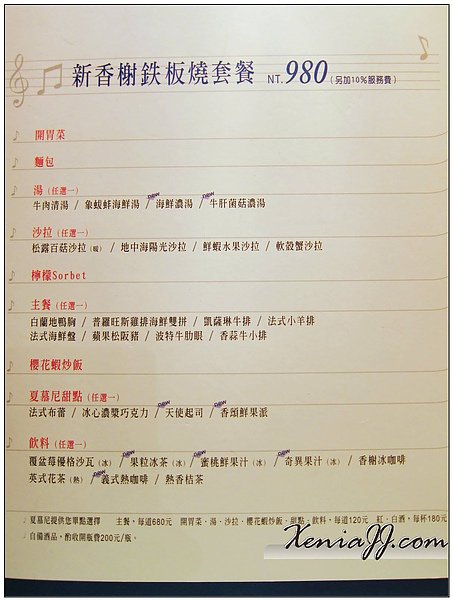 新香榭鉄板燒套餐 NT. 980 (另加10%服務費)
開胃菜
麵包
湯 (任選一)
牛肉清湯 / 象蚊蚌海鮮湯 / 海鮮濃湯 / 牛肝菌菇濃湯
沙拉 (任選一)
松露百菇沙拉 (暖) / 地中海陽光沙拉 / 鮮蝦水果沙拉 / 軟殼蟹沙拉
檸檬Sorbet
主餐 (任選一)
白蘭地鴨胸 / 普羅旺斯雞排海鮮雙拼 / 凱薩琳牛排 / 法式小羊排
法式海鮮盤 / 蘋果松阪豬 / 波特牛肋眼 / 香蒜牛小排
櫻花蝦炒飯
夏慕尼甜點 (任選一)
法式布蕾 / 冰心濃漿巧克力 / 天使起司 / 香頌鮮果派
飲料 (任選一)
覆盆莓優格沙瓦 (冰) / 果粒冰茶 (冰) / 蜜桃鮮果汁 (冰) / 奇異果汁 (冰) / 香榭冰咖啡
英式花茶 (熱) / 義式熱咖啡 / 熱香桔茶
夏慕尼提供您單點選擇 主餐，每道680元 開胃菜、湯、沙拉、櫻花蝦炒飯、甜點、飲料，每道120元 紅、白酒，每杯180元
自備酒品，酌收開瓶費200元/瓶。
XeniaJJ.com